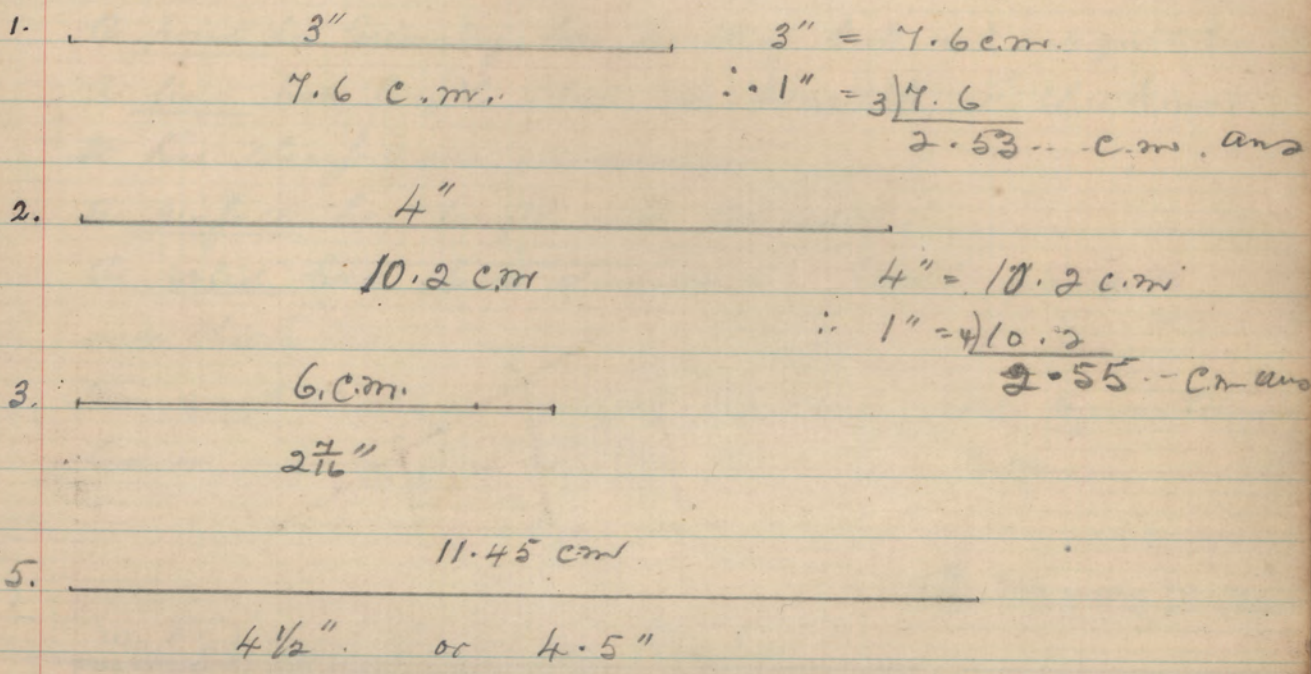 1. 3" 3" = 7.6 c.m.
7.6 c.m. ∴ 1" = 3)7.6
2.53.. c.m. ans
2. 4"
10.2 c.m 4" = 10.2 c.m
∴ 1" = 4)10.2
2.55.. c.m ans
3. 6.c.m.
2 7/16"
11.45 cm
5.
4 1/2". or 4.5"